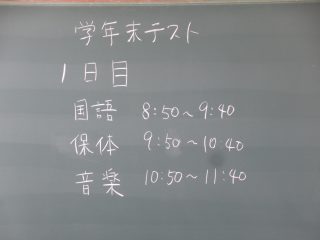 学年末テスト
1日目
国語 8:50~9:40
保体 9:50~10:40
音楽 10:50~11:40